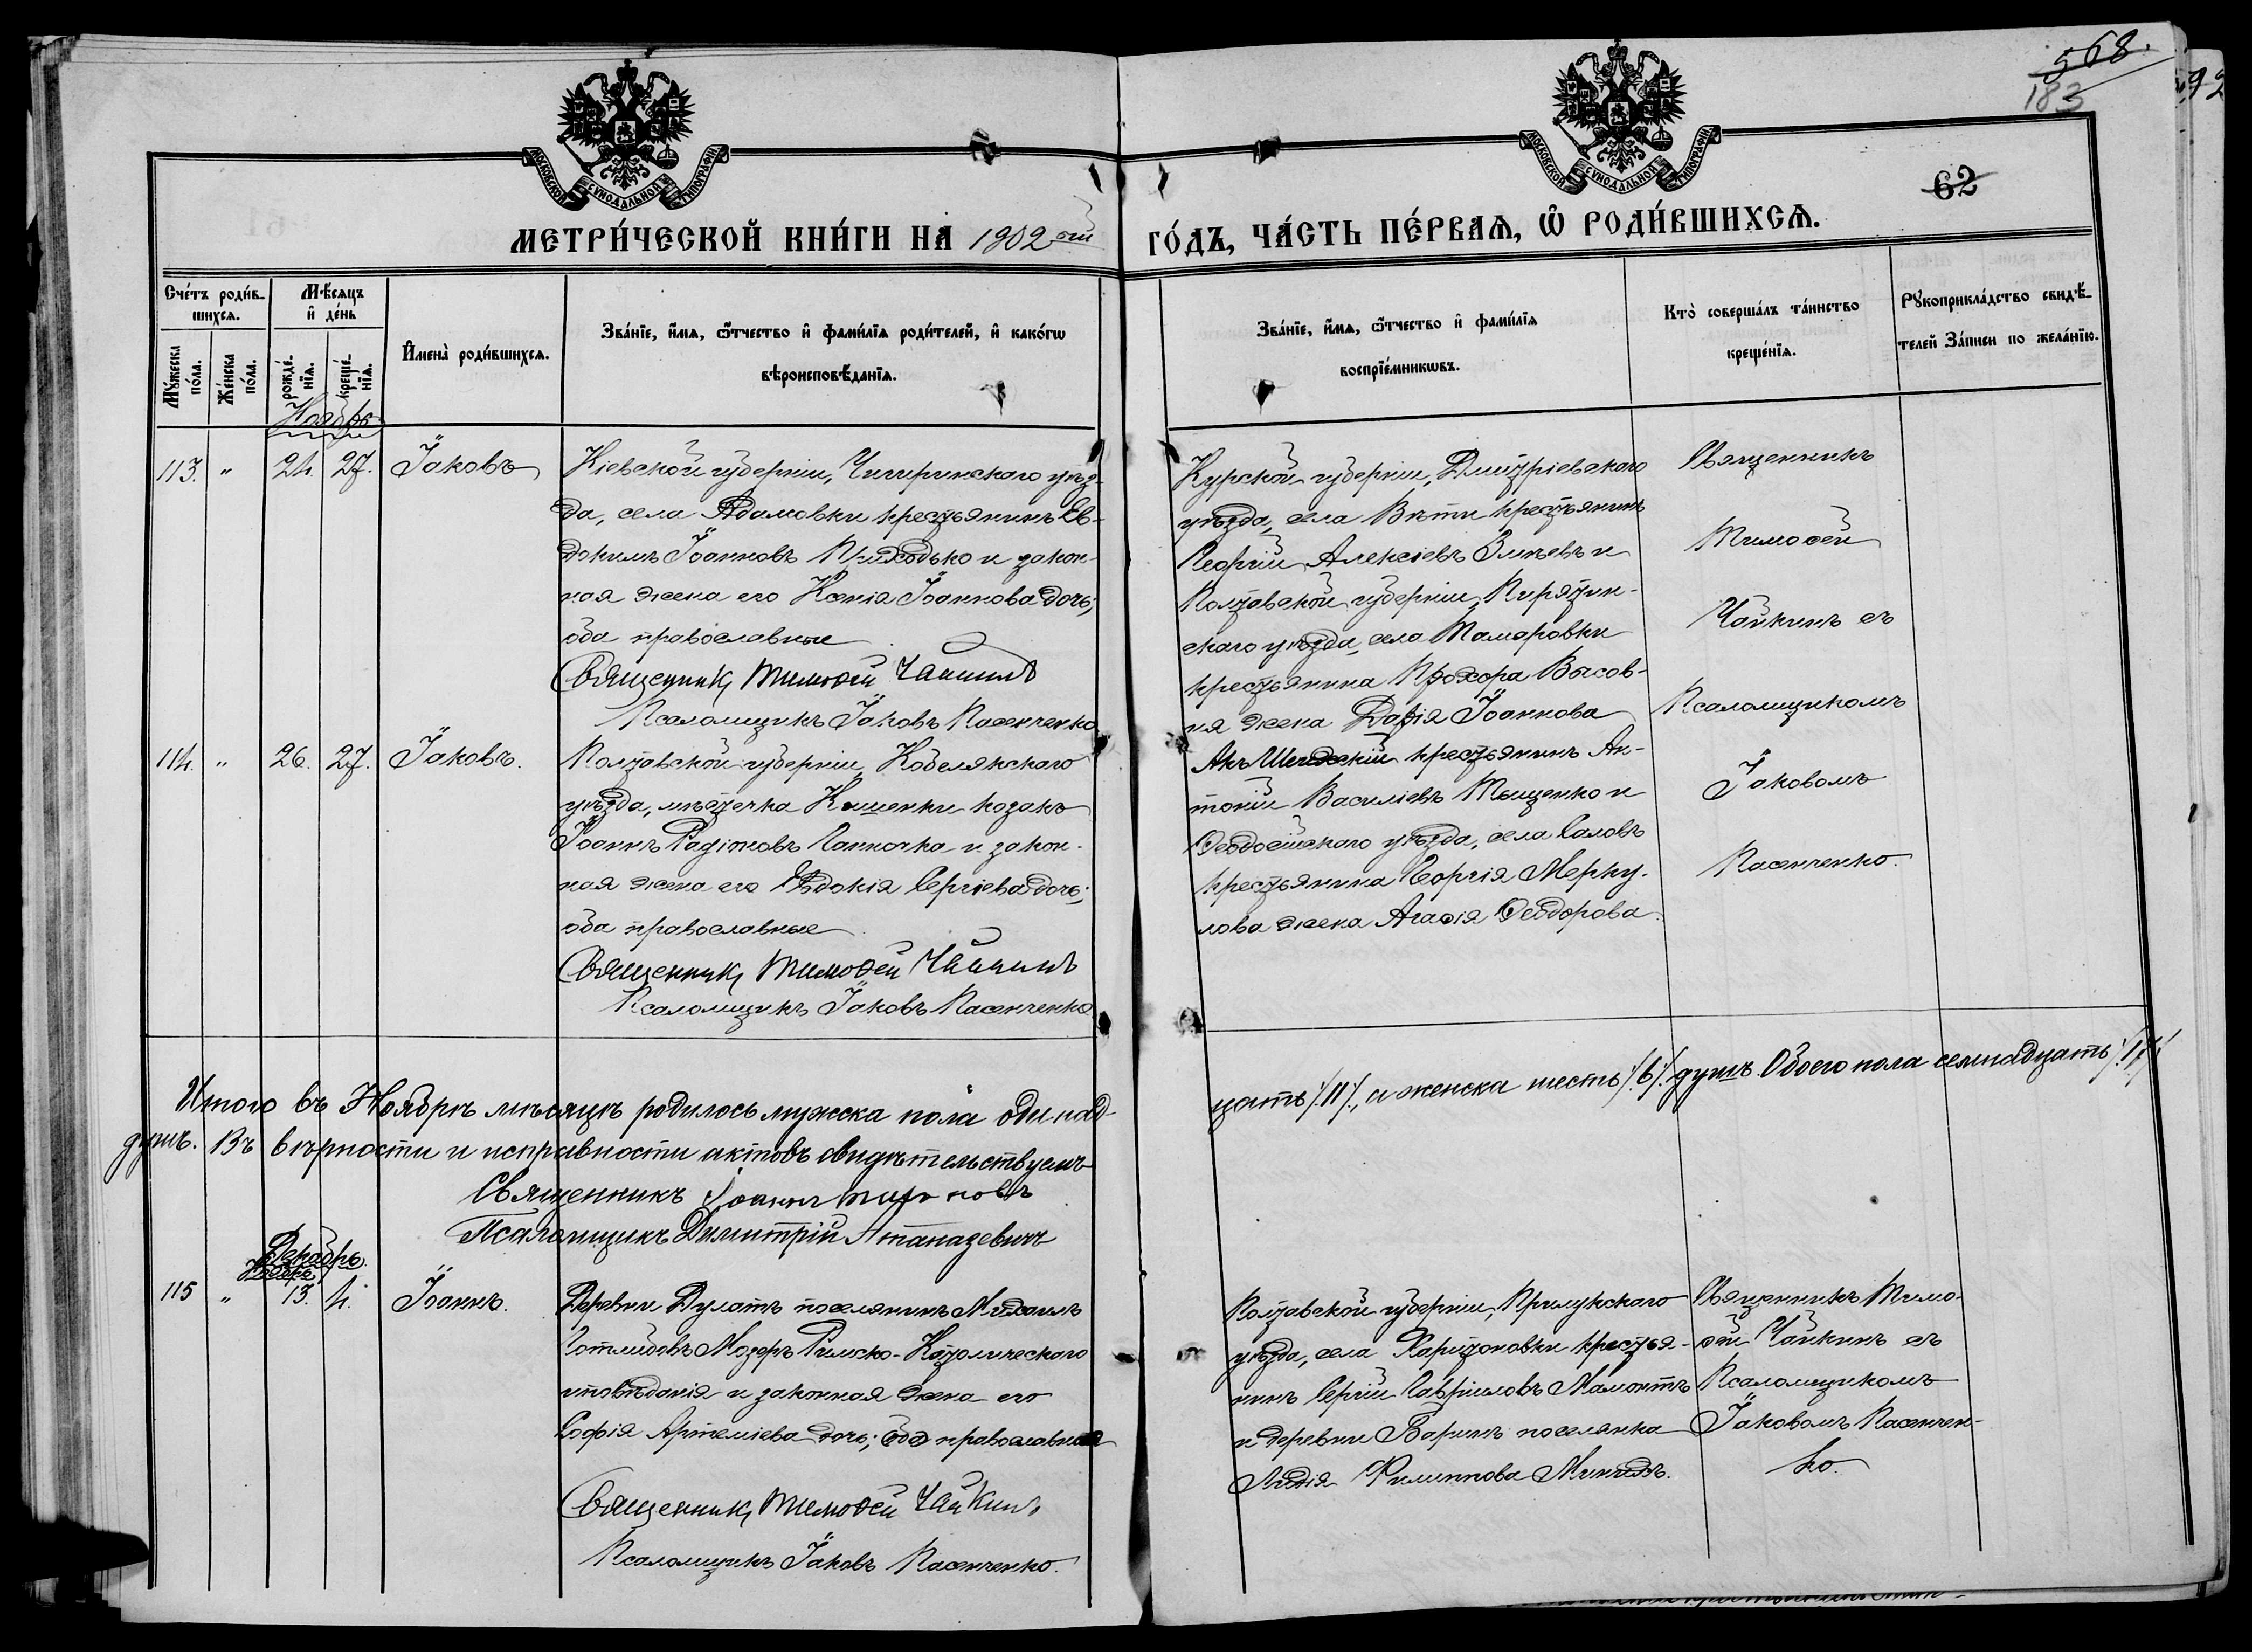 568.
183
92
62
МОСКОВСКОЙ СѴНОДАЛЬНОЙ ТИПОГРАФІИ.
МОСКОВСКОЙ СѴНОДАЛЬНОЙ ТИПОГРАФІИ.
МЕТРИ́ЧЕСКОЙ КНИ́ГИ НА 1902 ой
ГО́ДЪ, ЧА́СТЬ ПЕ́РВАѦ, Ѿ РОДИ́ВШИХСѦ.
Сче́тъ роди́в-
шихсѧ.
Мѣ́сѧцъ
и҆ де́нь
Мꙋ́жеска по́ла.
Же́нска по́ла.
рожде́-
нїѧ.
креще́-
нїѧ.
И҆мена̀ роди́вшихсѧ.
Зва́нїе, и҆́мѧ, ѻ҆́тчество и҆ фами́лїѧ роди́телей, и҆ како́гѡ
вѣроисповѣ́данїѧ.
Зва́нїе, и҆́мѧ, ѻ҆́тчество и҆ фами́лїѧ
воспрїе́мникѡвъ.
Кто̀ соверша́лъ та́инство
креще́нїѧ.
Рꙋкоприкла́дство свидѣ́-
телей за́писи по жела́нїю.
Ноябрь
113. " 24. 27. Іаковъ
Кіевской губерніи, Чигиринскаго уѣз-
да, села Адамовки крестьянинъ Ев-
докимъ Іоанновъ Приходько и закон-
ная жена его Ксенія Іоаннова дочь;
оба православные
Священникъ Тимоѳей Чайкинъ
Псаломщикъ Іаковъ Пасенченко
Курской губерніи, Дмитріевскаго
уѣзда, села Вѣти крестьянинъ
Георгій Алексіевъ Змѣевъ и
Полтавской губерніи, Пирятин-
скаго уѣзда, села Тамаровки
крестьянина Прохора Высов-
ня жена Дарія Іоаннова
Священникъ
Тимоѳей
Чайкинъ съ
Псаломщикомъ
Іаковомъ
Пасенченко.
114. " 26. 27. Іаковъ.
Полтавской губерніи, Кобелякскаго
уѣзда, мѣстечка Кишенки козакъ
Іоаннъ Ганночка и закон-
ная жена его Евдокія Сергіева дочь;
оба православные
Священникъ Тимоѳей Чайкинъ
Псаломщикъ Іаковъ Пасенченко
Акъ-Шеихскій крестьянинъ Ан-
тоній Василіевъ Тыщенко и
Ѳеодосійскаго уѣзда, села Саловъ
крестьянина Георгія Мерку-
лова жена Агаѳія Ѳеодорова.
Итого въ Ноябрѣ мѣсяцѣ родилось мужска пола одинад-
цать /.11/., и женска шесть /.6/. душъ. Обоего пола семнадцать /.17/.
душъ. Въ вѣрности и исправности актовъ свидѣтельствуемъ
Священникъ Іоаннъ Тихоновъ
Псаломщикъ Димитрій Атаназевичъ
Декабрь.
Ноябрь
115 " 13. 4. Іоаннъ.
Деревни Дулатъ поселянинъ Михаилъ
Готлибовъ Мозеръ Римско-Католическаго
исповѣданія и законная жена его
Софія Артеміева дочь; православная
Священникъ Тимоѳей Чайкинъ
Псаломщикъ Іаковъ Пасенченко.
Полтавской губерніи, Прилукскаго
уѣзда, села Харитоновки крестья-
нинъ Сергій Гавріиловъ Мамонтъ
и деревни Барынъ поселянка
Лидія Филиппова
Священникъ Тимо-
ѳей Чайкинъ съ
Псаломщикомъ
Іаковомъ Пасенчен-
ко.